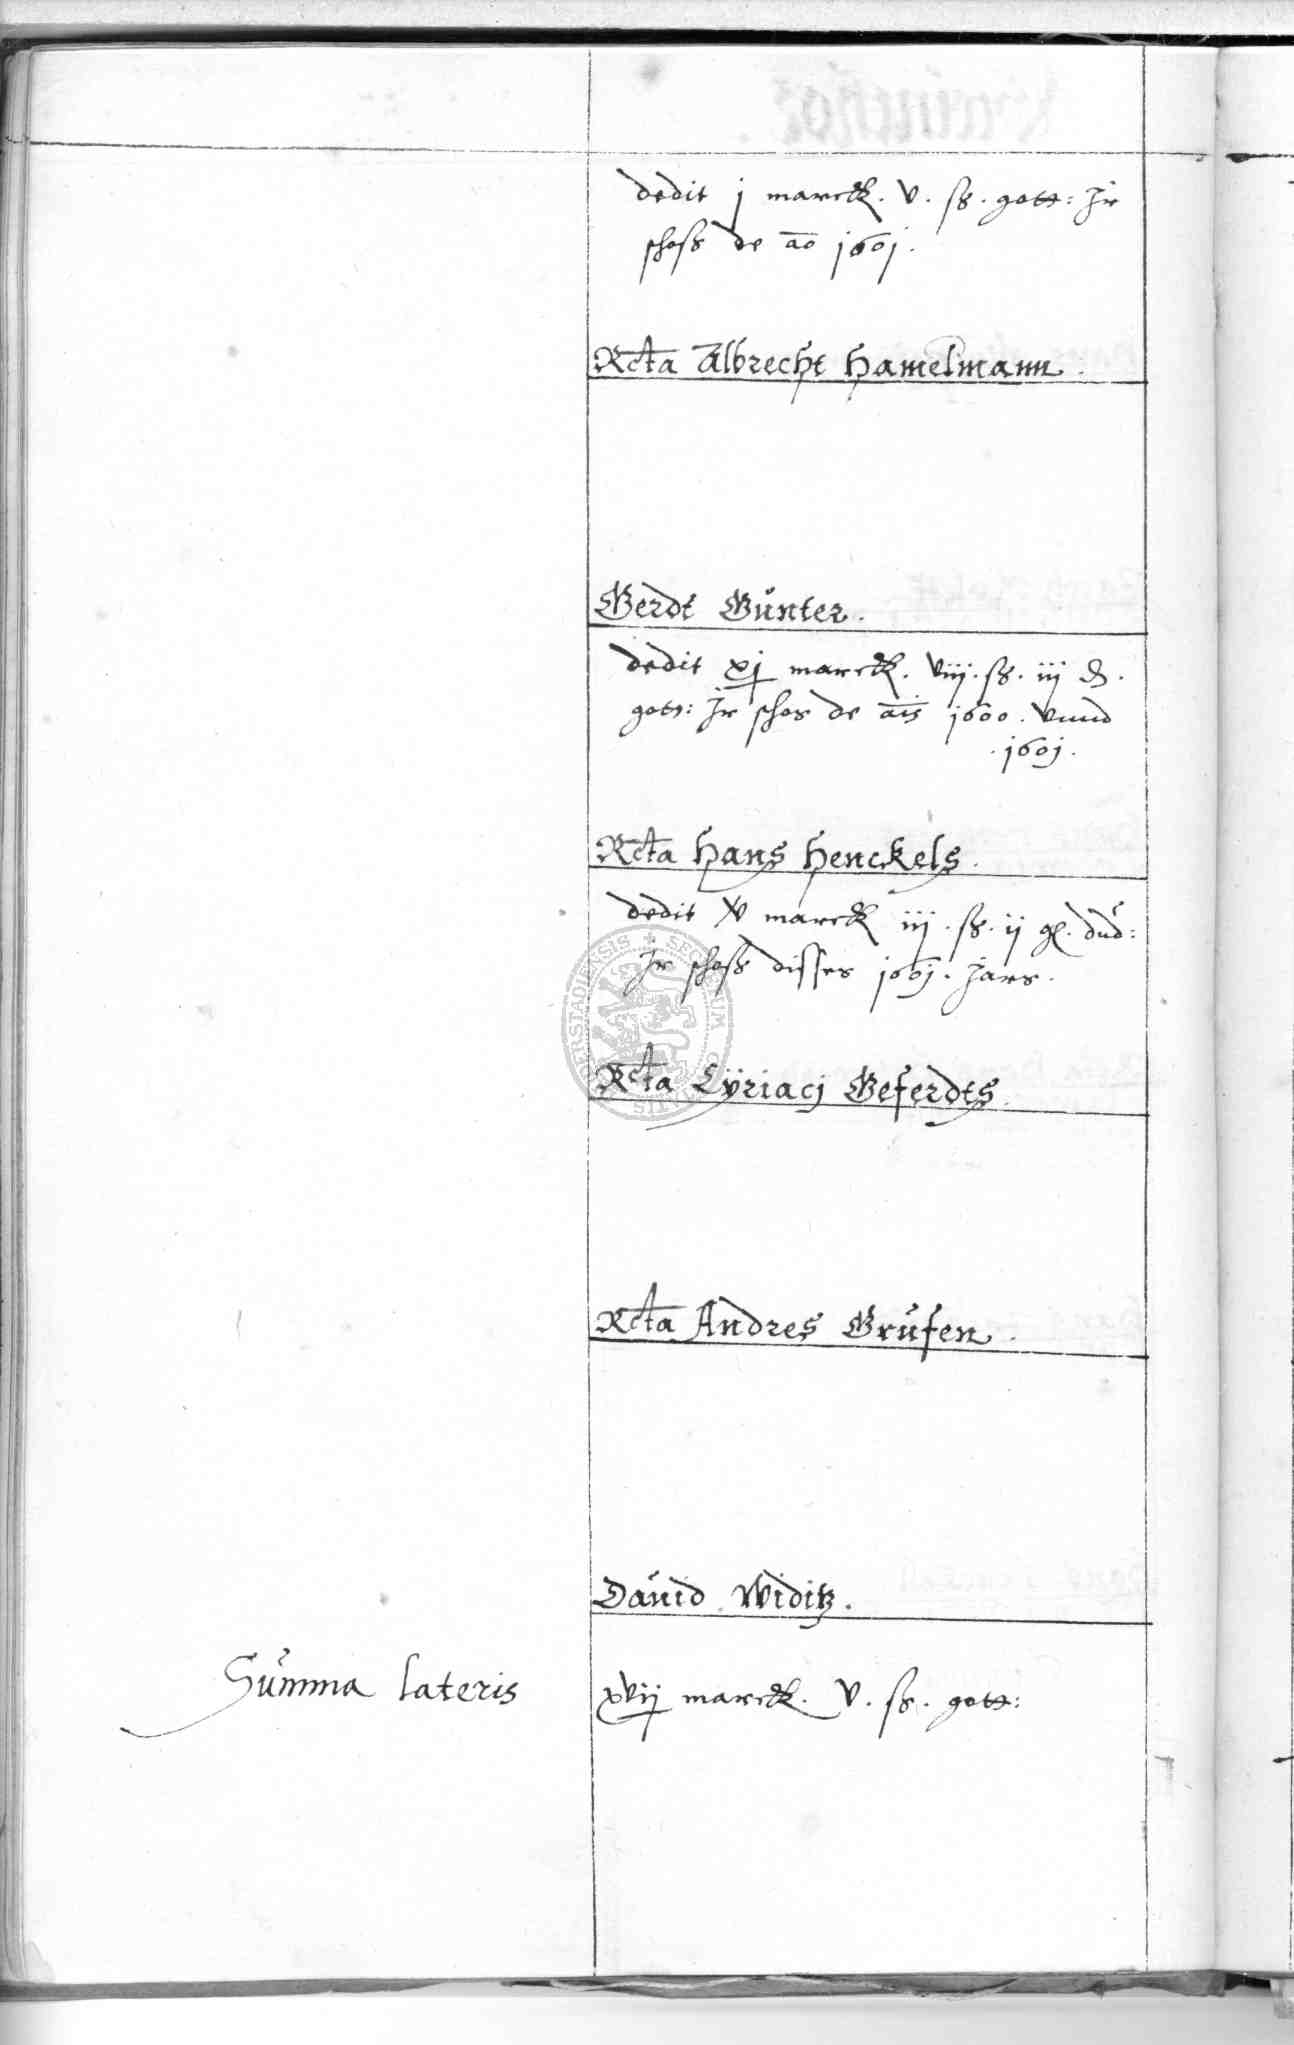 dedit j marck. v. ß. gott: Jr
schoß de ao 1601.
Rcta Albrecht Hamelmann.
Gerdt Günter.
dedit xj marck. viij. ß. iij ₰.
gott: Jr schos de ais 1600. vnnd
.1601.
Rcta Hans Henckels.
dedit v marck iij. ß. ij gl. dud:
Jr schoß disses 1601. Jars.
Rcta Cÿriacj Geferdts.
Rcta Andres Grüfen.
Dauid Widitz.
Summa lateris xvij marck. v. ß. gott: